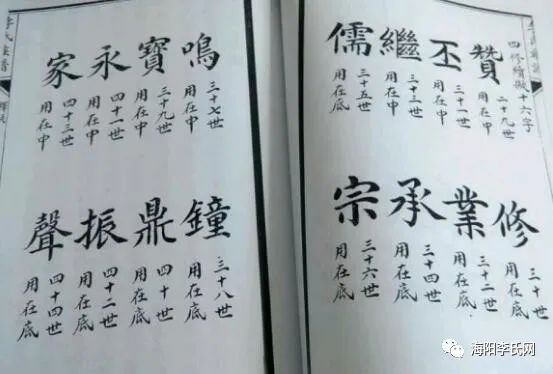 四修續擬十六字
贊 二十九世 用在中
修 三十世 用在底
丕 三十一世 用在中
業 三十二世 用在底
繼 三十三世 用在中
承 三十四世 用在底
儒 三十五世 用在底
宗 三十六世 用在底
鳴 三十七世 用在中
鐘 三十八世 用在底
寶 三十九世 用在中
鼎 四十世 用在底
永 四十一世 用在中
振 四十二世 用在底
家 四十三世 用在中
聲 四十四世 用在底
李氏族譜
海阳李氏网